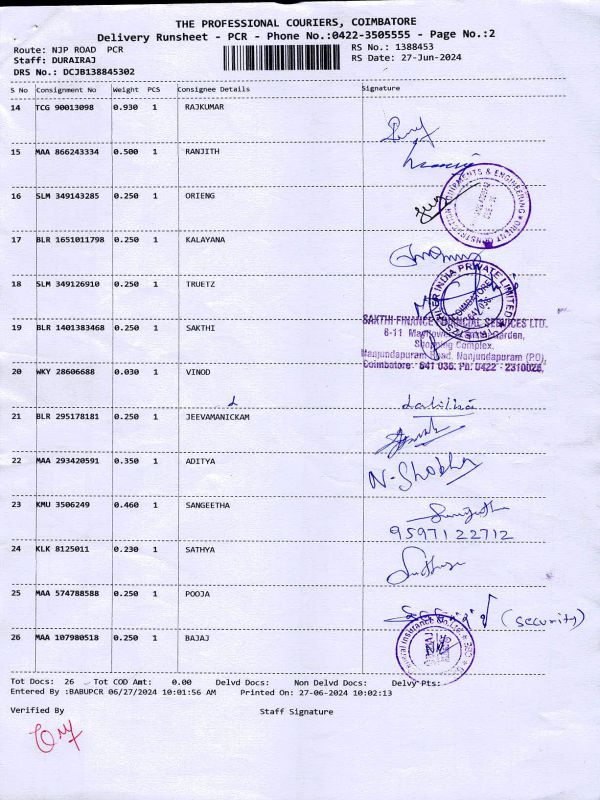 THE PROFESSIONAL COURIERS, COIMBATORE
Delivery Runsheet - PCR - Phone No.:0422-3505555 - Page No.:2
Route: NJP ROAD PCR
RS No.: 1388453
Staff: DURAIRAJ
RS Date: 27-Jun-2024
DRS No.: DCJB138845302
S No Consignment No Weight PCS Consignee Details Signature
14 TCG 90013098 0.930 1 RAJKUMAR
15 MAA 866243334 0.500 1 RANJITH
16 SLM 349143285 0.250 1 ORIENG
17 BLR 1651011798 0.250 1 KALAYANA
18 SLM 349126910 0.250 1 TRUETZ
19 BLR 1401383468 0.250 1 SAKTHI
SAKTHI FINANCE FINANCIAL SERVICES LTD.
Shopping Complex,
Nanjundapuram Road, Nanjundapuram (PO),
Coimbatore - 641 036. Ph: 0422 - 2310026,
20 WKY 28606688 0.030 1 VINOD
21 BLR 295178181 0.250 1 JEEVAMANICKAM
22 MAA 293420591 0.350 1 ADITYA
N. Shobha
23 KMU 3506249 0.460 1 SANGEETHA
9597122712
24 KLK 8125011 0.230 1 SATHYA
25 MAA 574788588 0.250 1 POOJA
(security)
26 MAA 107980518 0.250 1 BAJAJ
Tot Docs: 26 Tot COD Amt: 0.00 Delvd Docs: Non Delvd Docs: Delvy Pts:
Entered By :BABUPCR 06/27/2024 10:01:56 AM Printed On: 27-06-2024 10:02:13
Verified By Staff Signature